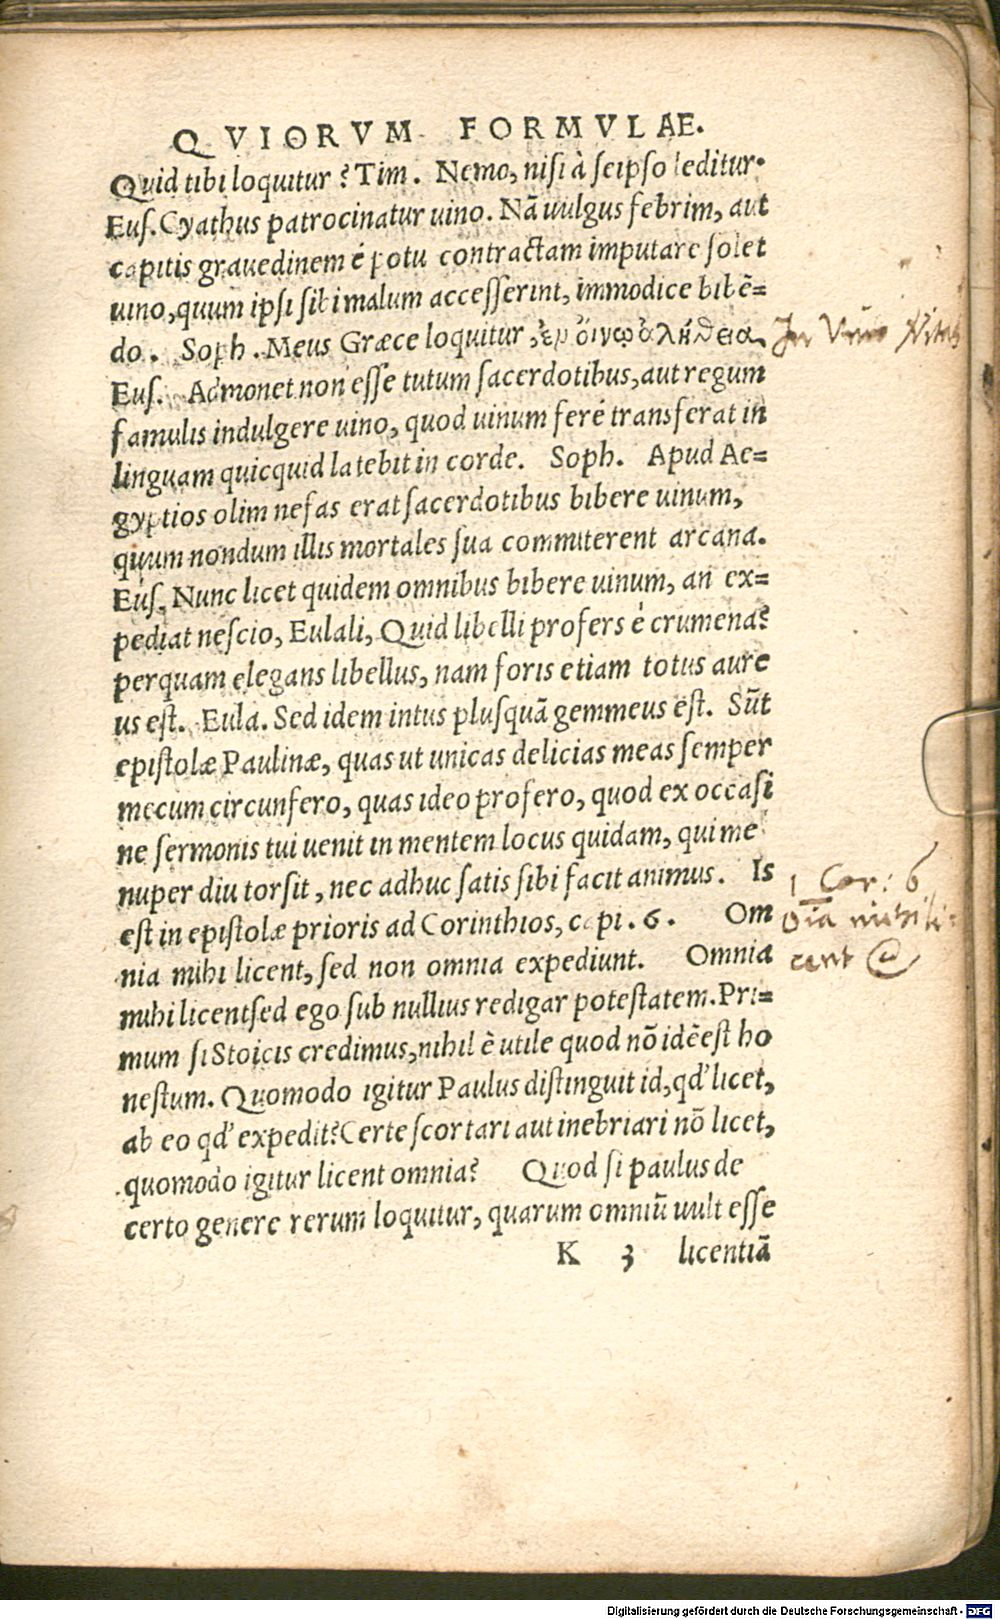 QVIORVM FORMVLAE.
Quid tibi loquitur? Tim. Nemo, nisi à seipso leditur.
Eus. Cyathus patrocinatur uino. Nã uulgus febrim, aut
capitis grauedinem é potu contractam imputare solet
uino, quum ipsi sibi malum accesserint, immodice bibẽ=
do. Soph. Meus Græce loquitur, ἐν οἴνῳ ἀλήθεια,
In Vino
Eus. Admonet non esse tutum sacerdotibus, aut regum
famulis indulgere uino, quod uinum feré transferat in
linguam quicquid latebit in corde. Soph. Apud Ae=
gyptios olim nefas erat sacerdotibus bibere uinum,
quum nondum illis mortales sua committerent arcana.
Eus. Nunc licet quidem omnibus bibere uinum, an ex=
pediat nescio, Eulali, Quid libelli profers é crumena?
perquam elegans libellus, nam foris etiam totus aure
us est. Eula. Sed idem intus plusquã gemmeus est. Sũt
epistolæ Paulinæ, quas ut unicas delicias meas semper
mecum circunfero, quas ideo profero, quod ex occasi
ne sermonis tui uenit in mentem locus quidam, qui me
nuper diu torsit, nec adhuc satis sibi facit animus. Is
1 Cor: 6
est in epistolæ prioris ad Corinthios, capi. 6. Om
oĩa mihi li=
nia mihi licent, sed non omnia expediunt. Omnia
cent @
mihi licentsed ego sub nullius redigar potestatem. Pri=
mum si Stoicis credimus, nihil ẽ utile quod nõ idẽ est ho
nestum. Quomodo igitur Paulus distinguit id, qd' licet,
ab eo qd' expedit? Certe scortari aut inebriari nõ licet,
quomodo igitur licent omnia? Quod si paulus de
certo genere rerum loquitur, quarum omniũ uult esse
K 3 licentiã
Digitalisierung gefördert durch die Deutsche Forschungsgemeinschaft - DFG